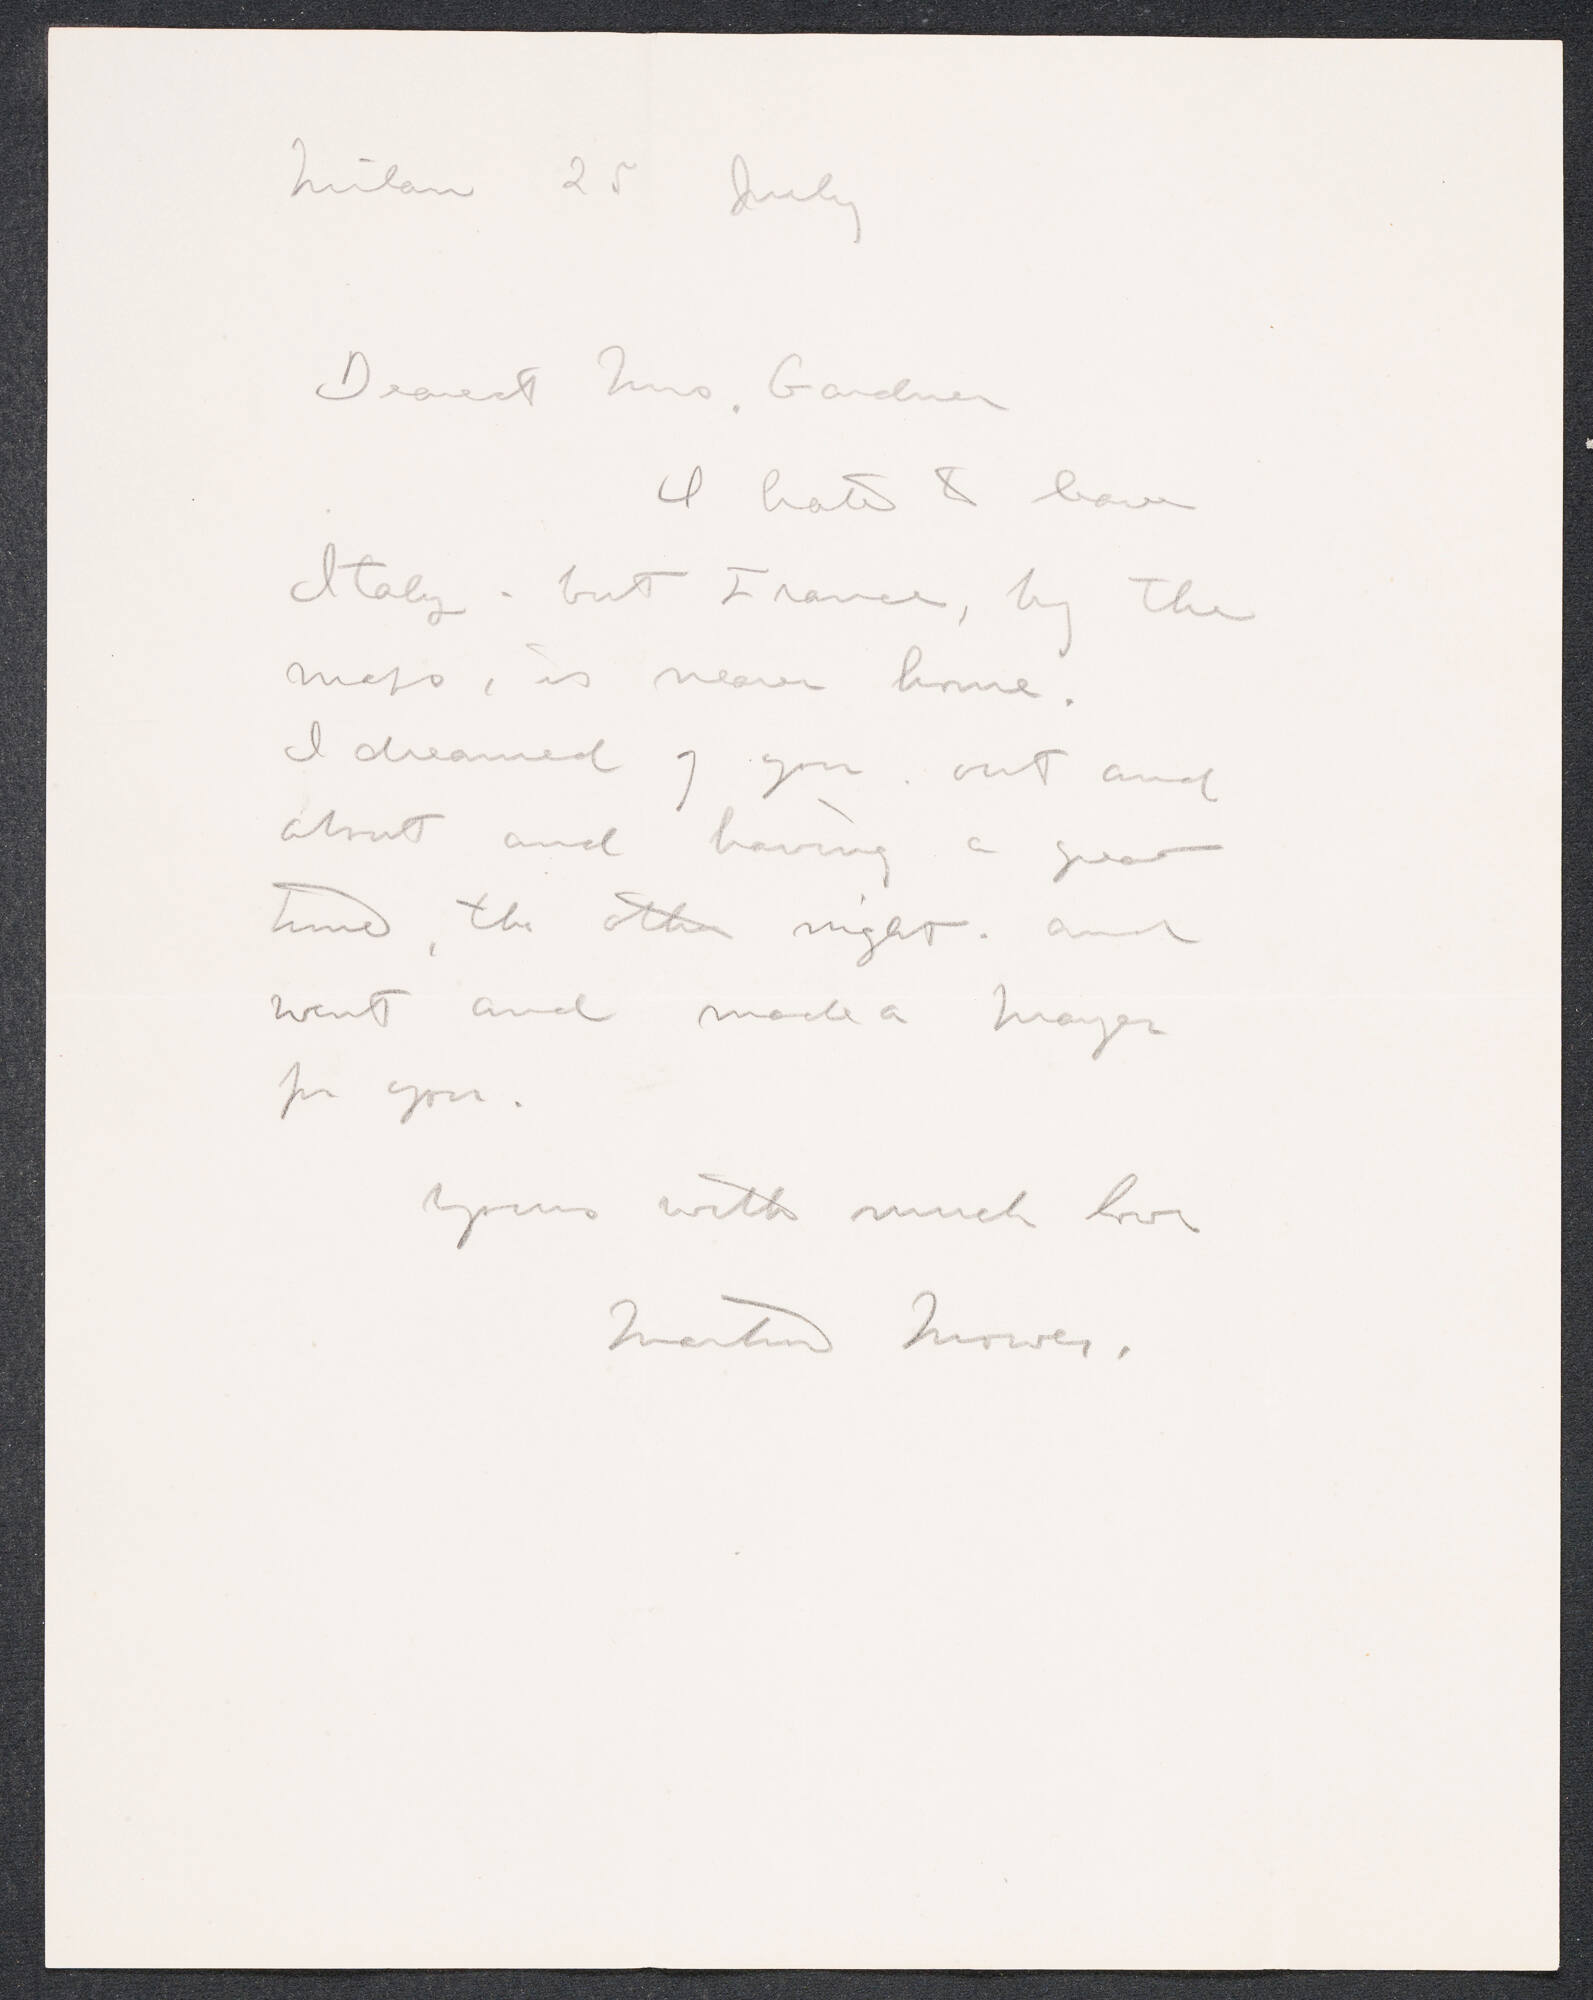 Milan 25 July
Dearest Mrs. Gardner
I hate to leave
Italy - but France, by the
maps, is nearer home.
I dreamed of you out and
about and having a great
time, the other night - and
went and made a prayer
for you.
Yours with much love
Martin Mower.